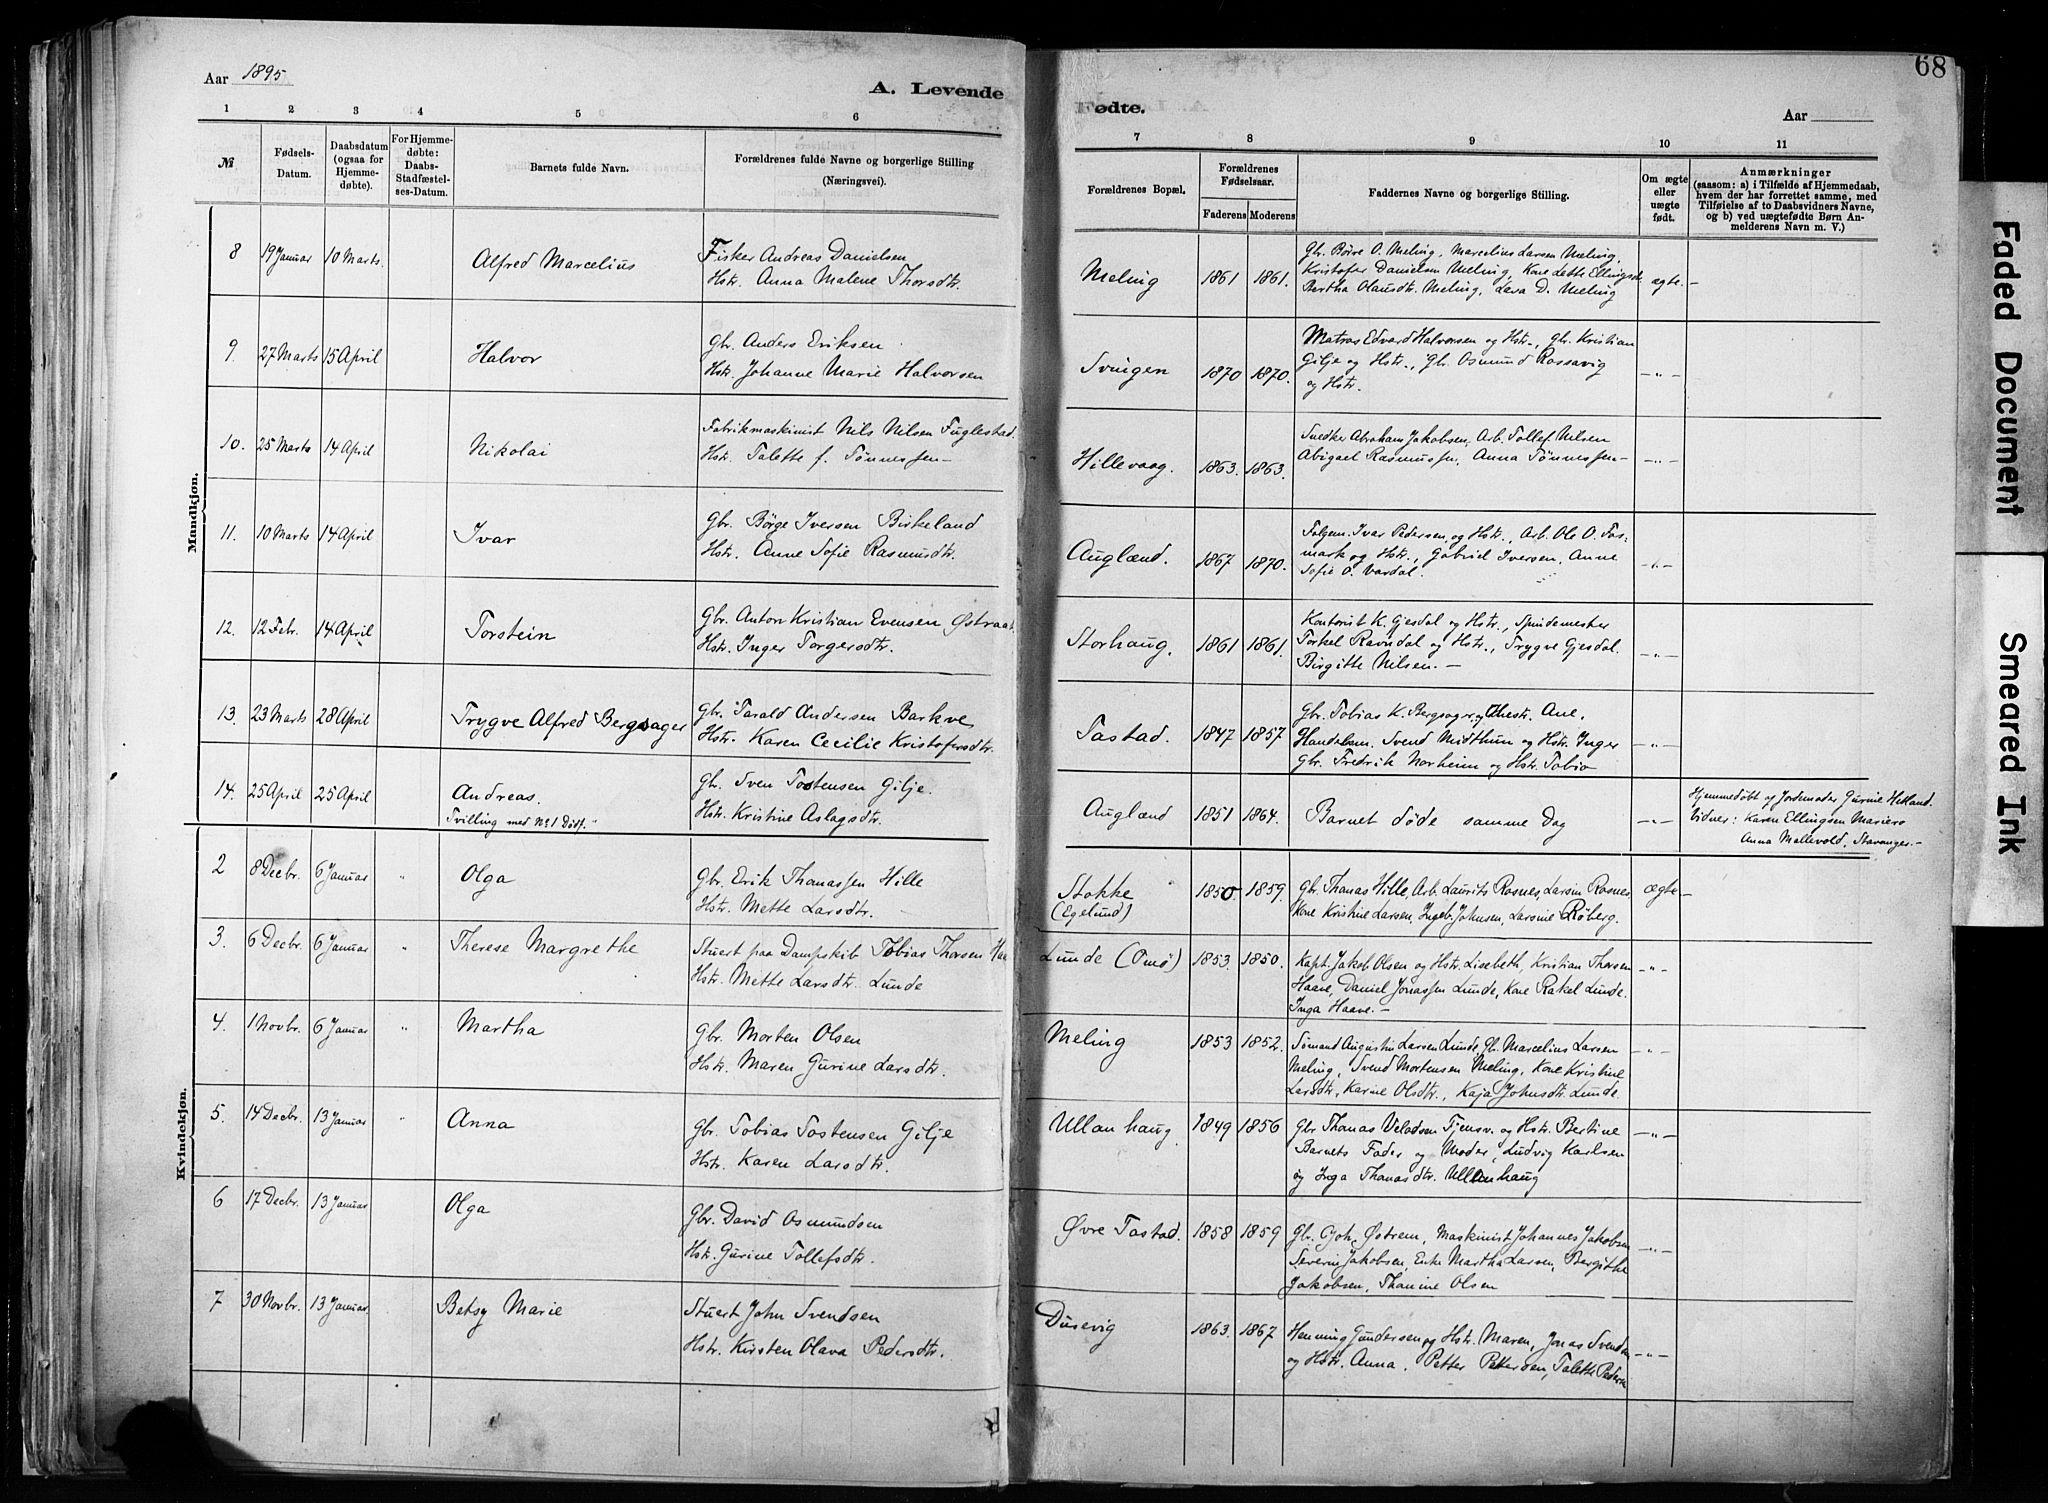 Aar 1895
A. Levende
1 2 3 4 5 6
№
Fødsels-
Datum.
Daabsdatum
(ogsaa for
Hjemme-
døbte).
For Hjemme-
døbte:
Daabs-
Stadfæstel-
ses-Datum.
Barnets fulde Navn.
Forældrenes fulde Navne og borgerlige Stilling
(Næringsvei).
Mandkjøn.
8 19 Januar 10 Marts. Alfred Marcelius
Fisker Andreas Danielsen
Hstr. Anna Malene Thorsdtr.
9. 27 Marts 15 April Halvor
Gbr. Anders Eriksen
Hstr. Johanne Marie Halvorsen
10. 25 Marts 14 April Nikolai
Fabrikmaskinist Nils Nilsen Fuglestad.
Hstr. Talette f. Tønnessen—
11. 10 Marts 14 April Ivar
Gbr. Børge Iversen Birkeland
Hstr. Anne Sofie Rasmusdtr.
12. 12 Febr. 14 April Torstein
Gbr. Anton Kristian Evensen Østraat.
Hstr. Inger Torgersdtr.
13. 23 Marts 28 April Trygve Alfred Bergsager
Gbr. Tarald Andersen Barkve
Hstr. Karen Cecilie Kristofersdtr.
14. 25 April 25 April Andreas.
Tvilling med № 1 Dødf.
Gb. Sven Tostensen Gilje.
Hstr. Kristine Aslagsdtr.
Kvindekjøn.
2 8 Decbr. 6 Januar " Olga
Gbr. Erik Thomassen Hille
Hstr. Mette Larsdtr.
3. 6 Decbr. 6 Januar " Therese Margrethe
Stuert paa Dampskib Tobias Thorsen Haa
Hstr. Mette Larsdtr. Lunde
4. 1 Novbr. 6 Januar " Martha
Gbr. Morten Olsen
Hstr. Maren Gurine Larsdtr.
5. 14 Decbr. 13 Januar " Anna
Gbr. Tobias Tostensen Gilje
Hstr. Karen Larsdtr.
6 17 Decbr. 13 Januar Olga
Gbr. David Osmundsen
Hstr. Gurine Tollefsdtr.
7 30 Novbr. 13 Januar. Betsy Marie
Stuert John Svendsen
Hstr. Kirsten Olava Pedersdtr.
68
Fødte.
Aar
7 8 9 10 11
Forældrenes Bopæl.
Forældrenes
Fødselsaar.
Faderens Moderens
Faddernes Navne og borgerlige Stilling.
Om ægte
eller
uægte
født.
Anmærkninger
(saasom: a) i Tilfælde af Hjemmedaab,
hvem der har forrettet samme, med
Tilføielse af to Daabsvidners Navne,
og b) ved uægtefødte Børn An-
melderens Navn m. V.)
Meling 1861 1861.
Gbr. Børre O. Meling, Marcelius Larsen Meling,
Kristofer Danielsen Meling, Kone Lette Ellingsdtr.
Bertha Olausdtr. Meling, Lava D. Meling
ægte.—
Svingen 1870 1870.
Matros Edvard Halvorsen og Hstr., Gbr. Kristian
Gilje og Hstr., Gbr. Osmund Rossavig
og Hstr.
—"—
Hillevaag. 1863. 1863.
Snedker Abraham Jakobsen, Arb. Tollef Nilsen
Abigael Rasmussen, Anna Tønnessen—
—"—
Auglænd. 1867 1870.
Folgem. Ivar Pedersen og Hstr., Arb. Ole O. Fos-
mark og Hstr., Gabriel Iversen, Anne
Sofie O. Vardal.
—"—
Storhaug. 1861 1861.
Kontorist K. Gjesdal og Hstr., Spindemester
Torkel Ravndal og Hstr., Trygve Gjesdal.
Birgitte Nilsen.—
—"—
Tastad. 1847 1857
Gbr. Tobias K. Bergsager og Hustr. Ane,
Handelsm. Svend Midthun og Hstr. Inger
Gbr. Fredrik Norheim og Hstr. Tobia
—"—
Auglænd 1851 1864. Barnet døde samme Dag —"—
Hjemmedøbt af Jordemoder Gurine Hetland.
Vidner: Karen Ellingsen Mariero
Anna Mallevold, Stavanger.—
Stokke
(Egelund)
1850 1859.
Gbr. Thomas Hille, Arb. Laurits Rosnes, Larsin Rosnes,
Kone Kristine Larsen, Ingeb. Johnsen, Larsine Røberg.
ægte—
Lunde (Omø) 1853. 1850.
Kapt. Jakob Olsen og Hstr. Lisebeth, Kristian Thorsen
Haave, Daniel Jonassen Lunde, Kone Rakel Lunde.
Inga Haave.—
—"—
Meling 1853 1852.
Sømand Augustin Larsen Lunde, Gb. Marcelius Larsen
Meling, Svend Mortensen Meling, Kone Kristine
Larsdtr, Karine Olsdtr., Kaja Johnsdtr. Lunde.
—"—
Ullanhaug. 1849 1856
Gbr Thomas Veladsen Tjensv. og Hstr. Bertine
Barnets Fader og Moder, Ludvig Karlsen
og Inga Thomasdtr. Ullanhaug
—"—
Øvre Tastad. 1858 1859
Gb. Joh. Østrem, Maskinist Johannes Jakobsen
Severin Jakobsen, Enke Martha Larsen, Bergithe
Jakobsen, Thomine Olsen
—"—
Dusevig 1863. 1867
Henning Gundersen og Hstr. Maren, Jonas Svendsen
og Hstr. Anna, Petter Pettersen, Talette Peders
—"—
Faded Document
Smeared Ink